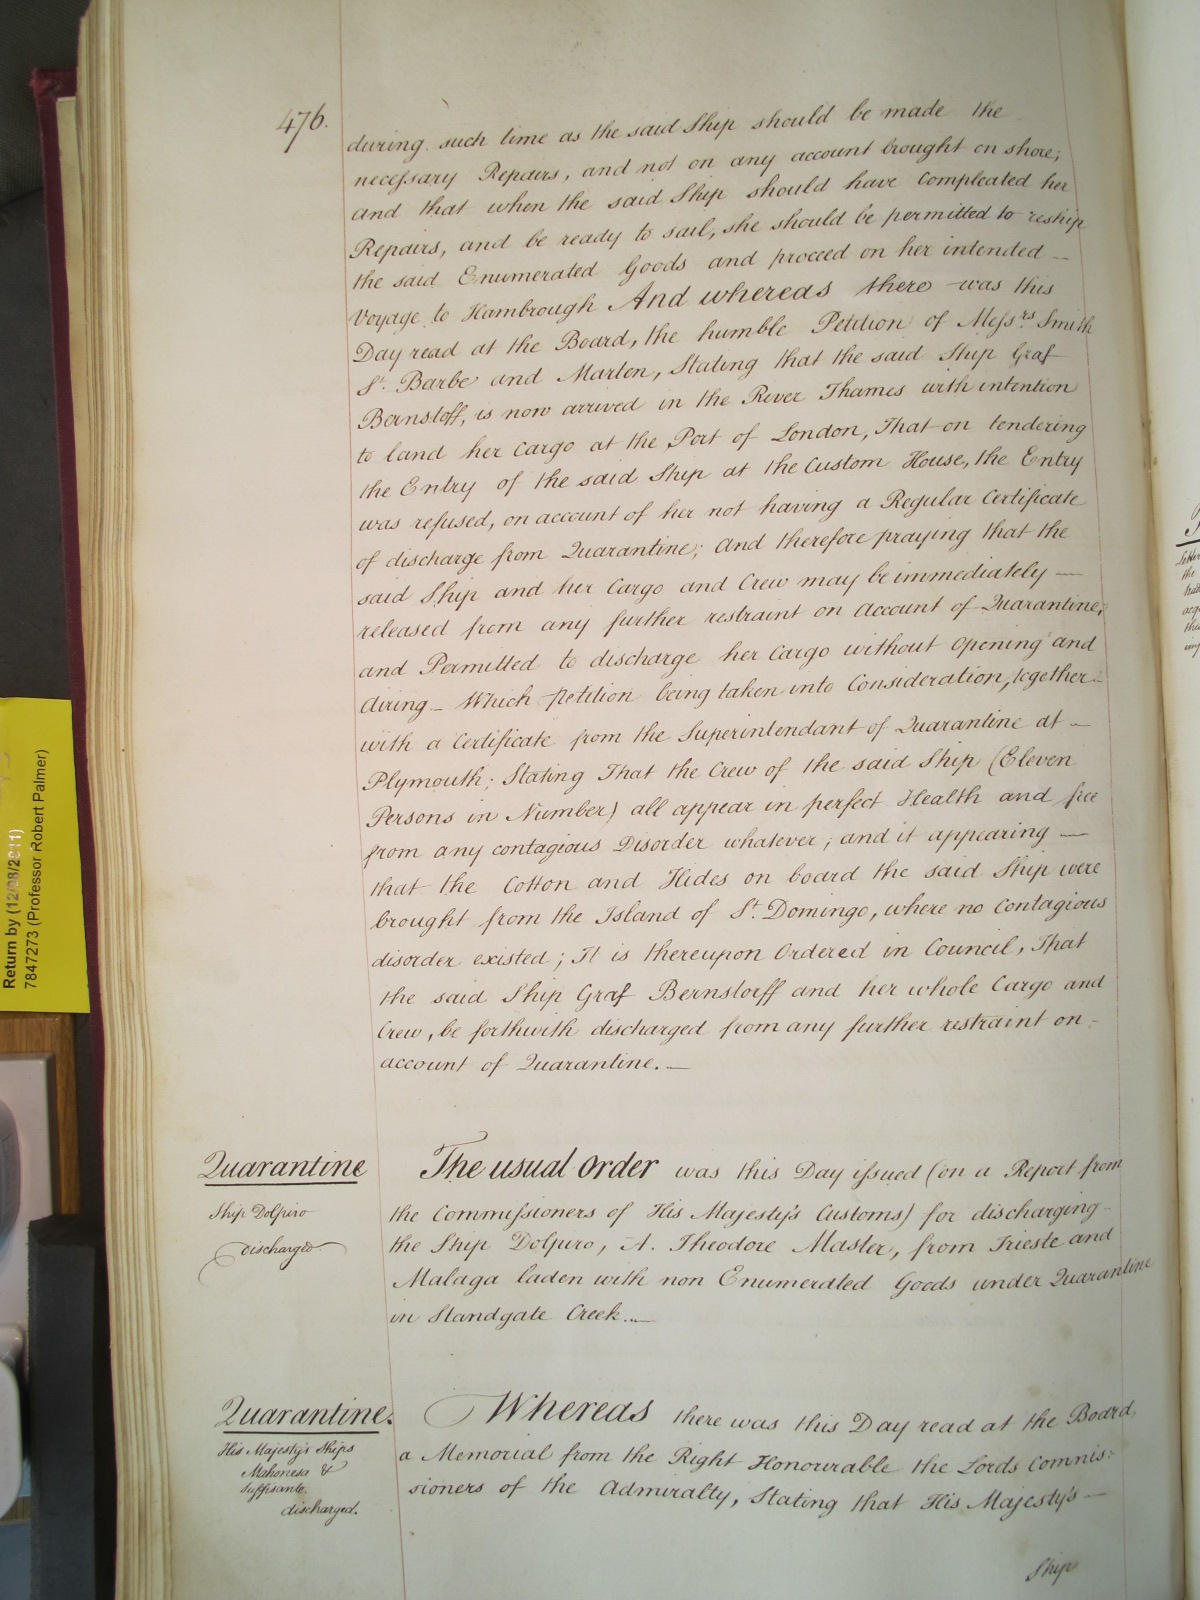 476.
during such time as the said Ship should be made the
necessary Repairs, and not on any account brought on shore;
and that when the said Ship should have Compleated her
Repairs, and be ready to sail, she should be permitted to reship
the said Enumerated Goods and proceed on her intended —
Voyage to Hambrough And whereas there was this
Day read at the Board, the humble Petition of Messrs. Smith
St. Barbe and Marten, Stating that the said Ship Graf
Bernstoff, is now arrived in the River Thames with intention
to land her Cargo at the Port of London, That on tendering
the Entry of the said Ship at the Custom House, the Entry
was refused, on account of her not having a Regular Certificate
of discharge from Quarantine; And therefore praying that the
said Ship and her Cargo and Crew may be immediately —
released from any further restraint on Account of Quarantine,
and Permitted to discharge her Cargo without opening and
Airing — Which Petition being taken into Consideration, together —
with a Certificate from the Superintendant of Quarantine at —
Plymouth; Stating That the Crew of the said Ship (Eleven
Persons in Number) all appear in perfect Health and free
from any contagious Disorder whatever; and it appearing —
that the Cotton and Hides on board the said Ship were
brought from the Island of St. Domingo, where no Contagious
disorder existed; It is thereupon Ordered in Council, That
the said Ship Graf Bernstorff and her whole Cargo and
Crew, be forthwith discharged from any further restraint on —
account of Quarantine. —
Quarantine
Ship Dolpiro
discharged
The usual Order was this Day issued (on a Report from
the Commissioners of His Majesty's Customs) for discharging —
the Ship Dolpiro, A. Theodore Master, from Trieste and
Malaga laden with non Enumerated Goods under Quarantine
in Standgate Creek. —
Quarantine.
His Majesty's Ships
Mahonesa &
Suffisante.
discharged.
Whereas there was this Day read at the Board,
a Memorial from the Right Honourable the Lords Commis:
sioners of the Admiralty, Stating that His Majesty's —
Ship
Return by (12/08/2011)
7847273 (Professor Robert Palmer)